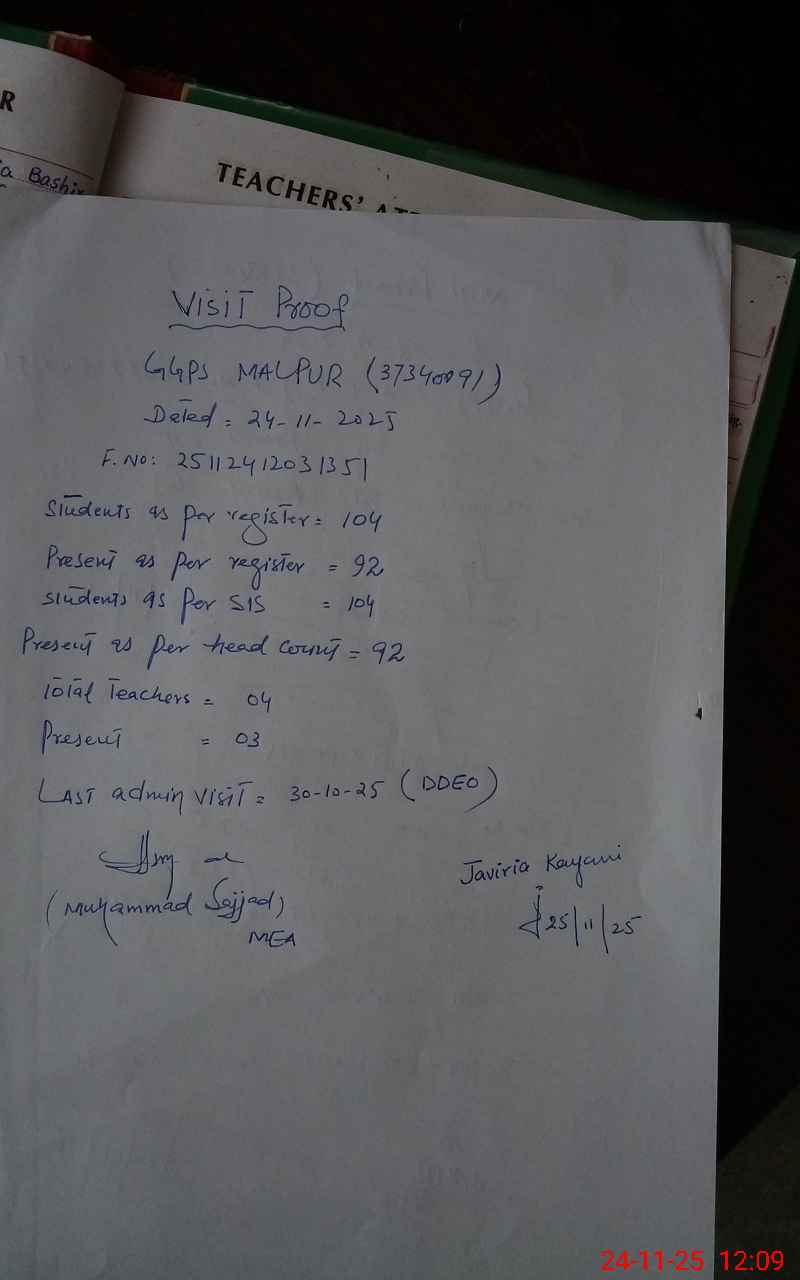 R
ia Bashir
TEACHERS' AT
Visit Proof
GGPS MALPUR (37340091)
Dated = 24-11-2025
F.No: 25112412031351
Students as per register = 104
Present as per register = 92
Students as per SIS = 104
Present as per head count = 92
Total Teachers = 04
Present = 03
Last admin visit = 30-10-25 (DDEO)
(Muhammad Sajjad)
MEA
Javiria Kayani
25/11/25
24-11-25 12:09